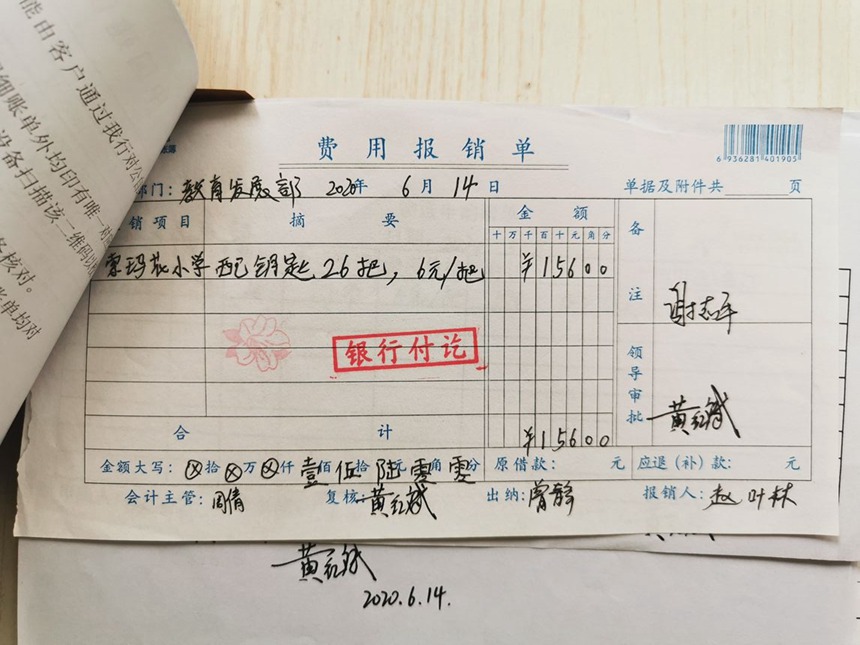 能由客户通过我行对公
细账单外均印有唯一对
设备扫描该二维码以
核对。
账单均对
费用报销单
6 936281 401905
部门：教育发展部 2020年 6月 14日 单据及附件共 页
销项目 摘要 金额 备注
十万千百十元角分
索玛花小学配钥匙26把，6元/把 ¥15600
谢志平
银行付讫
领导审批
黄红斌
合计 ¥15600
金额大写：ⓧ拾ⓧ万ⓧ仟壹佰伍拾陆元零角零分 原借款： 元 应退（补）款： 元
会计主管：周倩 复核：黄红斌 出纳：曾静 报销人：赵叶林
黄红斌
2020.6.14.